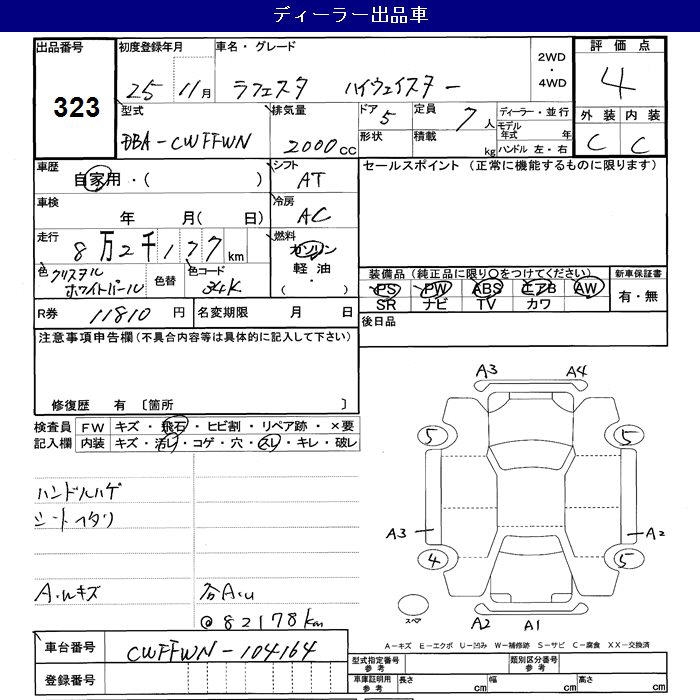 ディーラー出品車
出品番号 323
初度登録年月 25 11月
車名・グレード ラフェスタ ハイウェイスター
2WD・4WD
評価点 4
型式 DBA-CWFFWN
排気量 2000cc
ドア 5
形状
定員 7人
積載 kg
ディーラー・並行
モデル年式 年
ハンドル 左・右
外装 C
内装 C
車歴 自家用・( )
シフト AT
セールスポイント (正常に機能するものに限ります)
車検 年 月( 日)
冷房 AC
走行 8万2千177km
燃料 ガソリン 軽油・( )
色 クリスタルホワイトパール
色替
色コード 34K
装備品 (純正品に限り○をつけてください)
PS PW ABS エアB AW
SR ナビ TV カワ
新車保証書 有・無
R券 11810円
名変期限 月 日
後日品
注意事項申告欄 (不具合内容等は具体的に記入して下さい)
修復歴 有 〔箇所 〕
検査員記入欄
FW キズ・飛石・ヒビ割・リペア跡・×要
内装 キズ・汚レ・コゲ・穴・スレ・キレ・破レ
ハンドルハゲ
シートヘタリ
A.Uキズ
合A.U
@82178km
A3 A4
5 5
A3 A2
4 5
スペア
A2 A1
A-キズ E-エクボ U-凹み W-補修跡 S-サビ C-腐食 XX-交換済
車台番号 CWFFWN-104164
登録番号
型式指定番号 参考
類別区分番号 参考
車庫証明用 参考 長さ cm 幅 cm 高さ cm